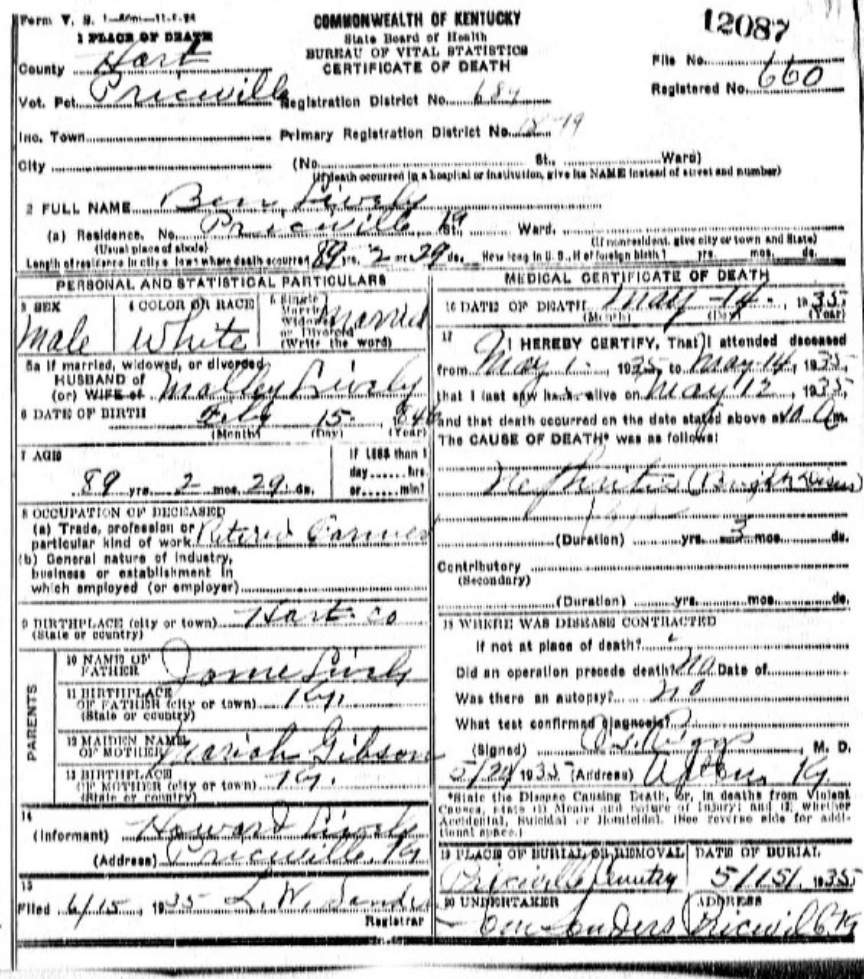 Form V. S. 1
COMMONWEALTH OF KENTUCKY
State Board of Health
BUREAU OF VITAL STATISTICS
CERTIFICATE OF DEATH
12087
1 PLACE OF DEATH
County Hart
File No.
Vot. Pct. Pricwille Registration District No. 687
Registered No. 660
Inc. Town Primary Registration District No.
City (No. St., Ward)
(If death occurred in a hospital or institution, give its NAME instead of street and number)
2 FULL NAME Ben Lively
(a) Residence. No. Pricwille St., Ward.
(Usual place of abode) (If nonresident, give city or town and State)
Length of residence in city or town where death occurred 89 yrs. 2 mos. 29 ds. How long in U. S., if of foreign birth? yrs. mos. ds.
PERSONAL AND STATISTICAL PARTICULARS
3 SEX Male
4 COLOR OR RACE White
5 Single Married Widowed or Divorced (Write the word) Married
5a If married, widowed, or divorced
HUSBAND of
(or) WIFE of Malley Lively
6 DATE OF BIRTH Feb 15 1846
(Month) (Day) (Year)
7 AGE
89 yrs. 2 mos. 29 ds.
If LESS than 1
day hrs.
or min?
8 OCCUPATION OF DECEASED
(a) Trade, profession or
particular kind of work Retired Farmer
(b) General nature of industry,
business or establishment in
which employed (or employer)
9 BIRTHPLACE (city or town) Hart Co
(State or country)
PARENTS
10 NAME OF
FATHER Lively
11 BIRTHPLACE
OF FATHER (city or town) Ky.
(State or country)
12 MAIDEN NAME
OF MOTHER Mariah Gibson
13 BIRTHPLACE
OF MOTHER (city or town) Ky.
(State or country)
14
(Informant) Howard Lively
(Address) Pricwille, Ky
15
Filed 6/15, 1935 L. W. Sanders
Registrar
MEDICAL CERTIFICATE OF DEATH
16 DATE OF DEATH May 14, 1935
(Month) (Day) (Year)
17 I HEREBY CERTIFY, That I attended deceased
from May 1, 1935, to May 14, 1935,
that I last saw h alive on May 12, 1935
and that death occurred on the date stated above at 10 A m.
The CAUSE OF DEATH* was as follows:
Nephritis (Bright Dises
(Duration) yrs. 3 mos. ds.
Contributory
(Secondary)
(Duration) yrs. mos. ds.
18 WHERE WAS DISEASE CONTRACTED
If not at place of death?
Did an operation precede death? No Date of
Was there an autopsy? no
What test confirmed diagnosis?
(Signed) , M. D.
5/24 1935 (Address) Ky.
*State the Disease Causing Death, or, in deaths from Violent
Causes, state (1) Means and Nature of Injury; and (2) whether
Accidental, Suicidal or Homicidal. (See reverse side for addi-
tional space.)
19 PLACE OF BURIAL OR REMOVAL
Pricwille Cemetry
DATE OF BURIAL
5/15/, 1935
20 UNDERTAKER
Sanders
ADDRESS
Pricwille Ky